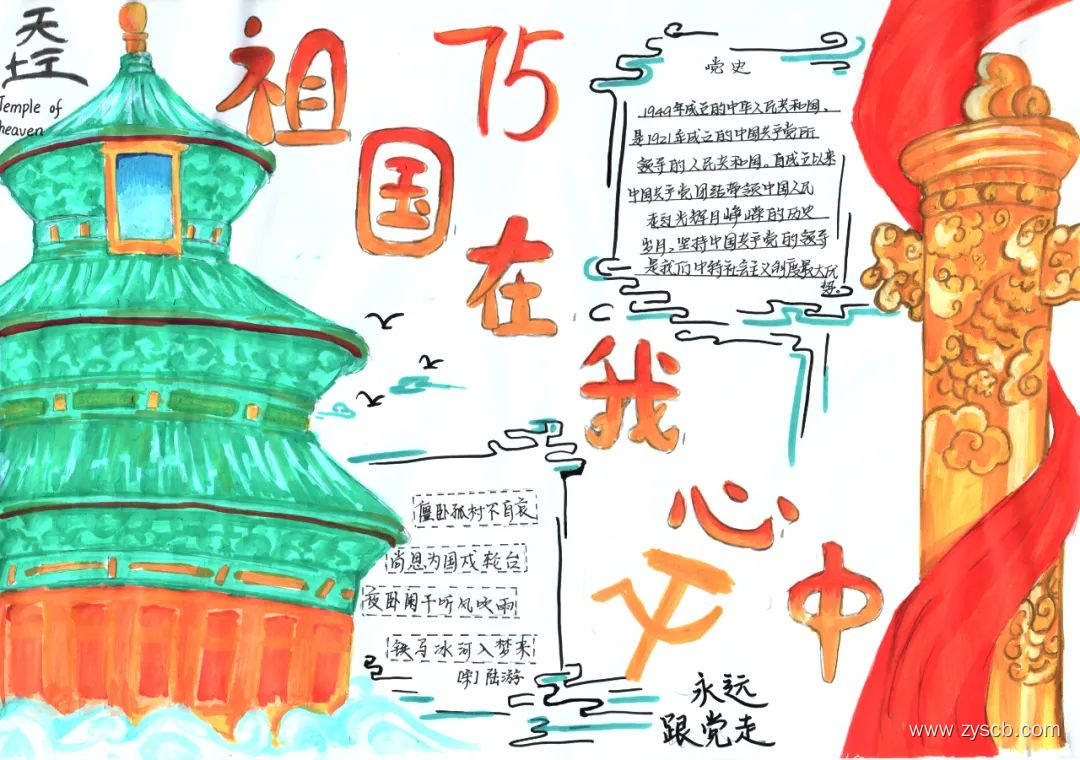 天
坛
Temple of
heaven
祖
国
75
在
我
心
中
党史
1949年成立的中华人民共和国,
是1921年成立的中国共产党所
领导的人民共和国。自成立以来
中国共产党团结带领中国人民
走过光辉月峥嵘的历史
岁月。坚持中国共产党的领导
是我们中特社会主义制度最大优
势。
僵卧孤村不自哀
尚思为国戍轮台
夜卧阑干听风吹雨
铁马冰河入梦来
陆游
永远
跟党走
www.zyscb.com